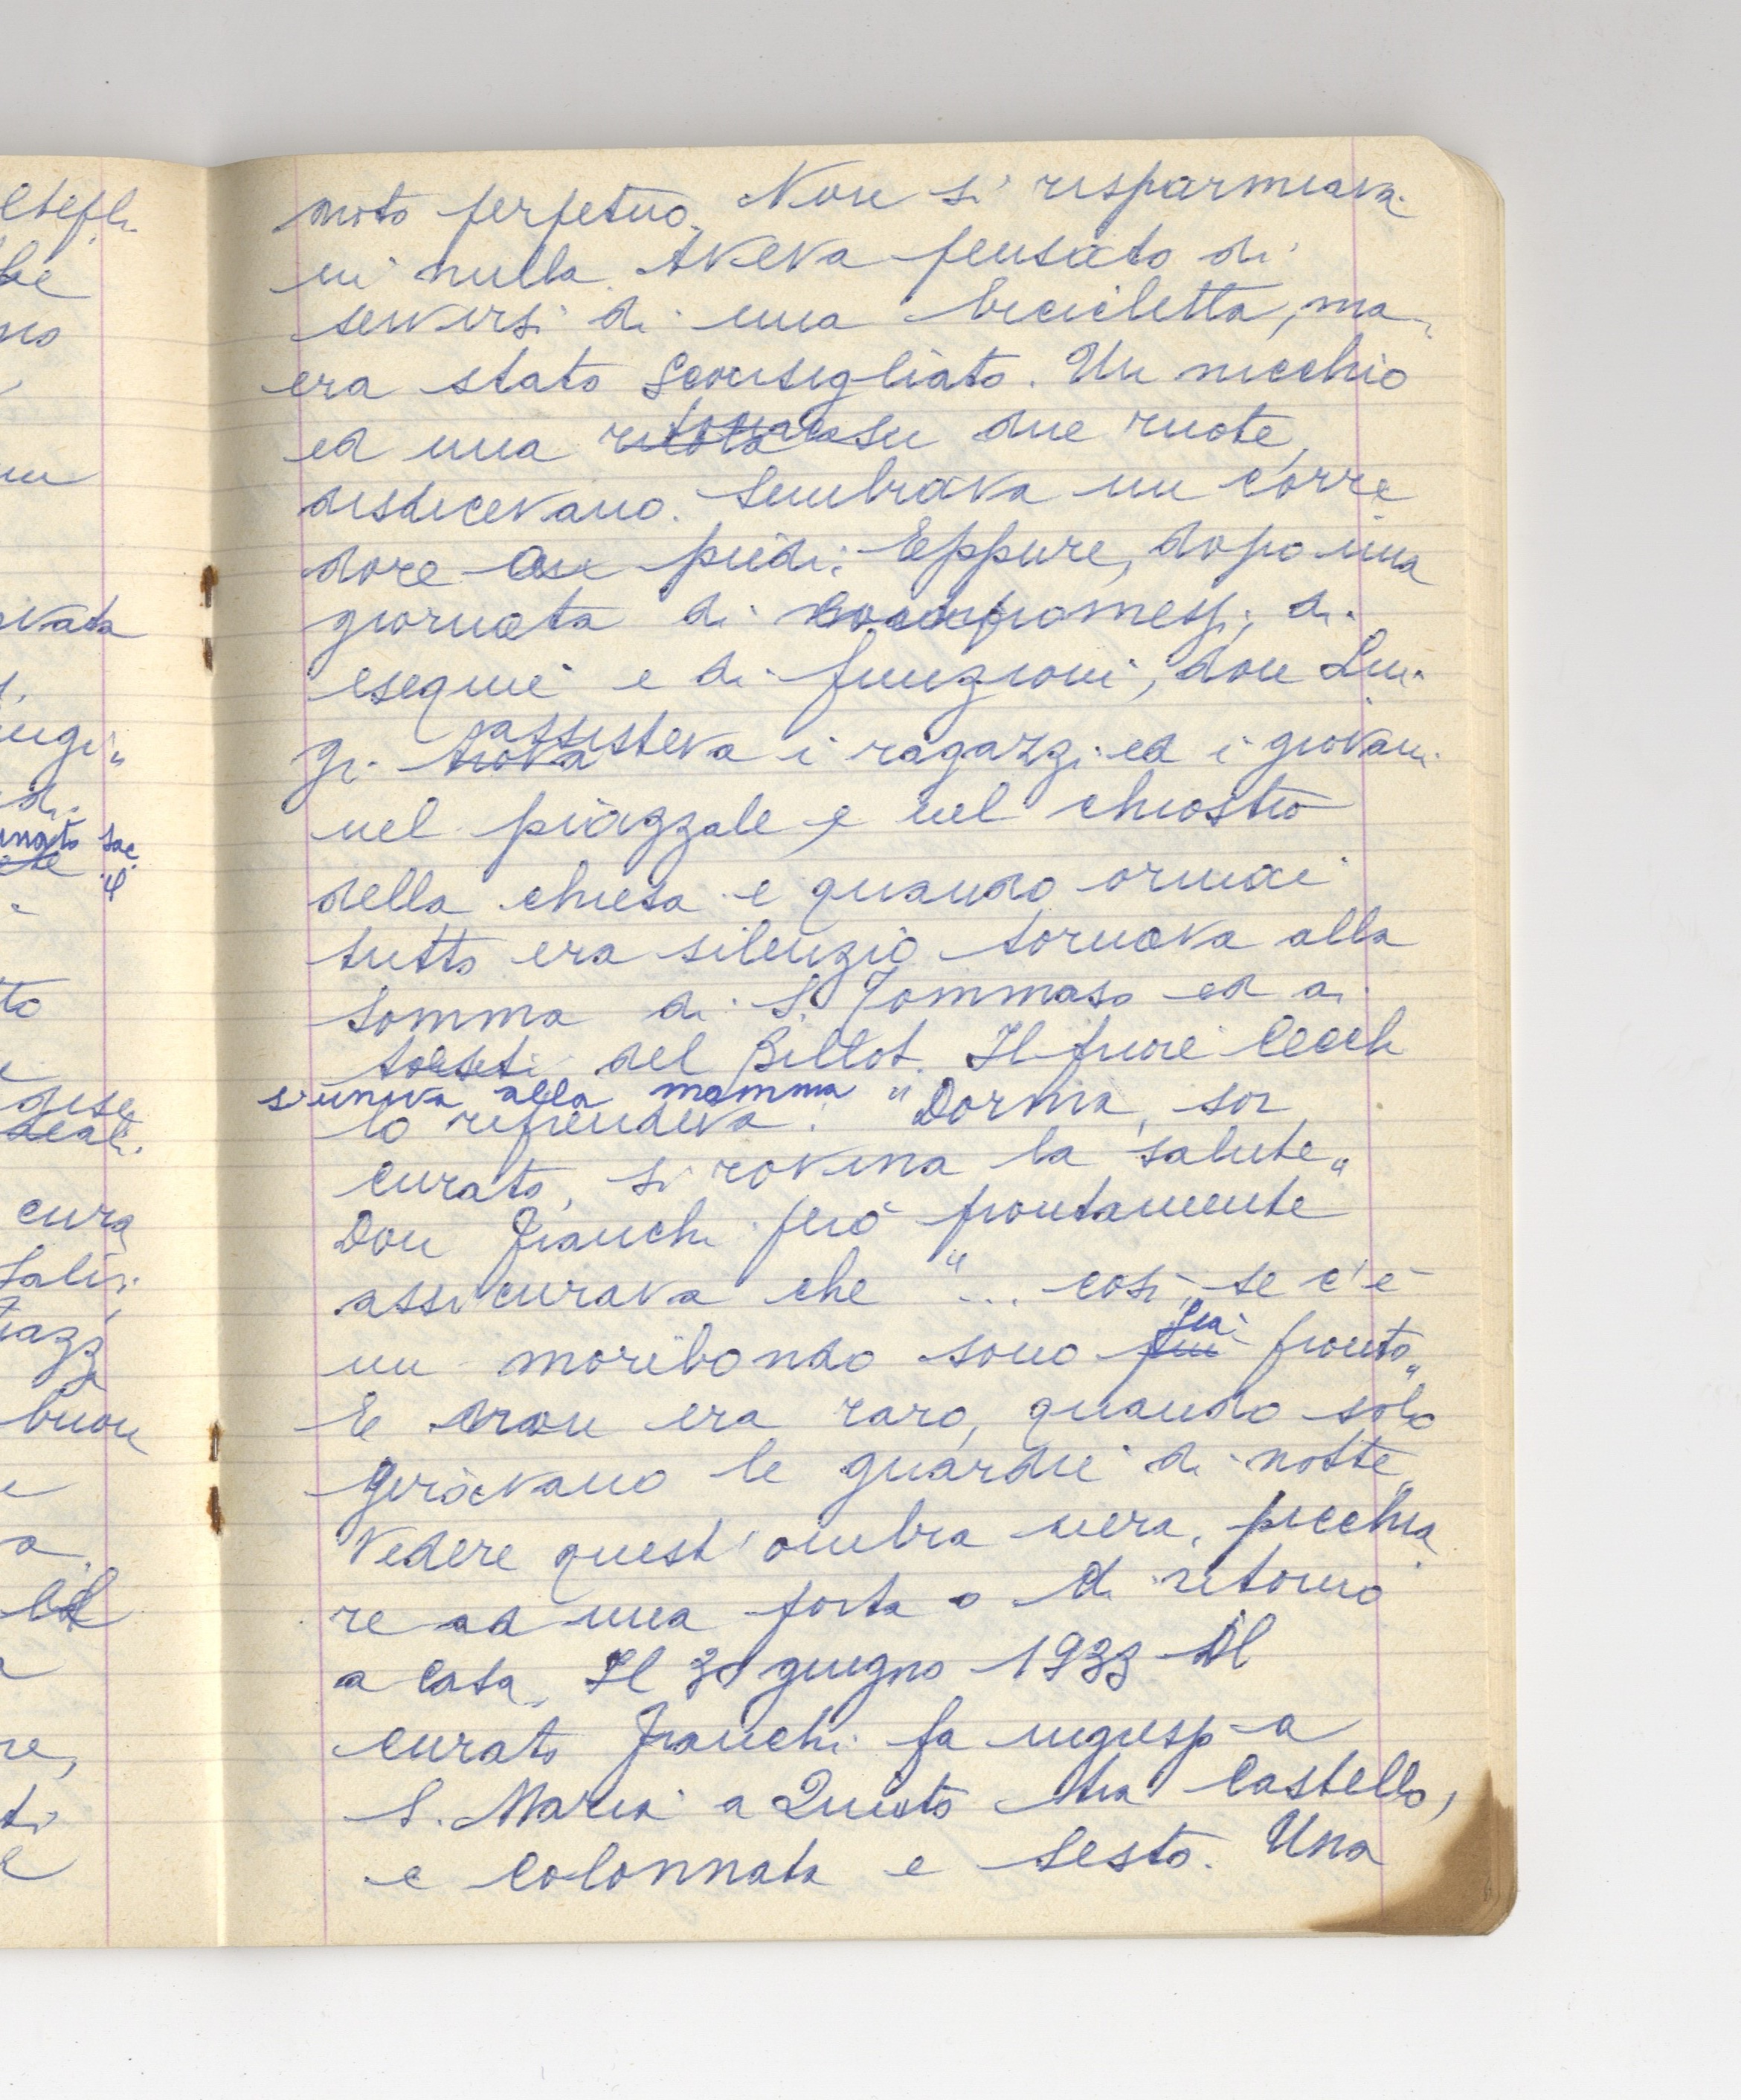 moto perpetuo. Non si risparmiava
in nulla. Aveva pensato di
servirsi di una bicicletta, ma
era stato sconsigliato. Un nicchio
ed una tonaca su due ruote,
disdicevano. Sembrava un corri
dore a piedi. Eppure, dopo una
giornata di compromessi, di
esequie e di funzioni, don Lui
gi assisteva i ragazzi ed i giovani
nel piazzale e nel chiostro
della chiesa e quando ormai
tutto era silenzio tornava alla
Somma di S. Tommaso ed ai
testi del Billot. Il priore Cecchi
s'univa alla mamma
lo riprendeva: "Dorma, sor
curato, si rovina la salute"
Don Franchi però prontamente
assicurava che "... così, se c'è
un moribondo sono già pronto"
E non era raro, quando solo
giravano le guardie di notte
vedere quest'ombra nera, picchia
re ad una porta o di ritorno
a casa. Il 30 giugno 1933 il
curato Franchi fa ingresso a
S. Maria a Quinto tra Castello,
e Colonnata e Sesto. Una